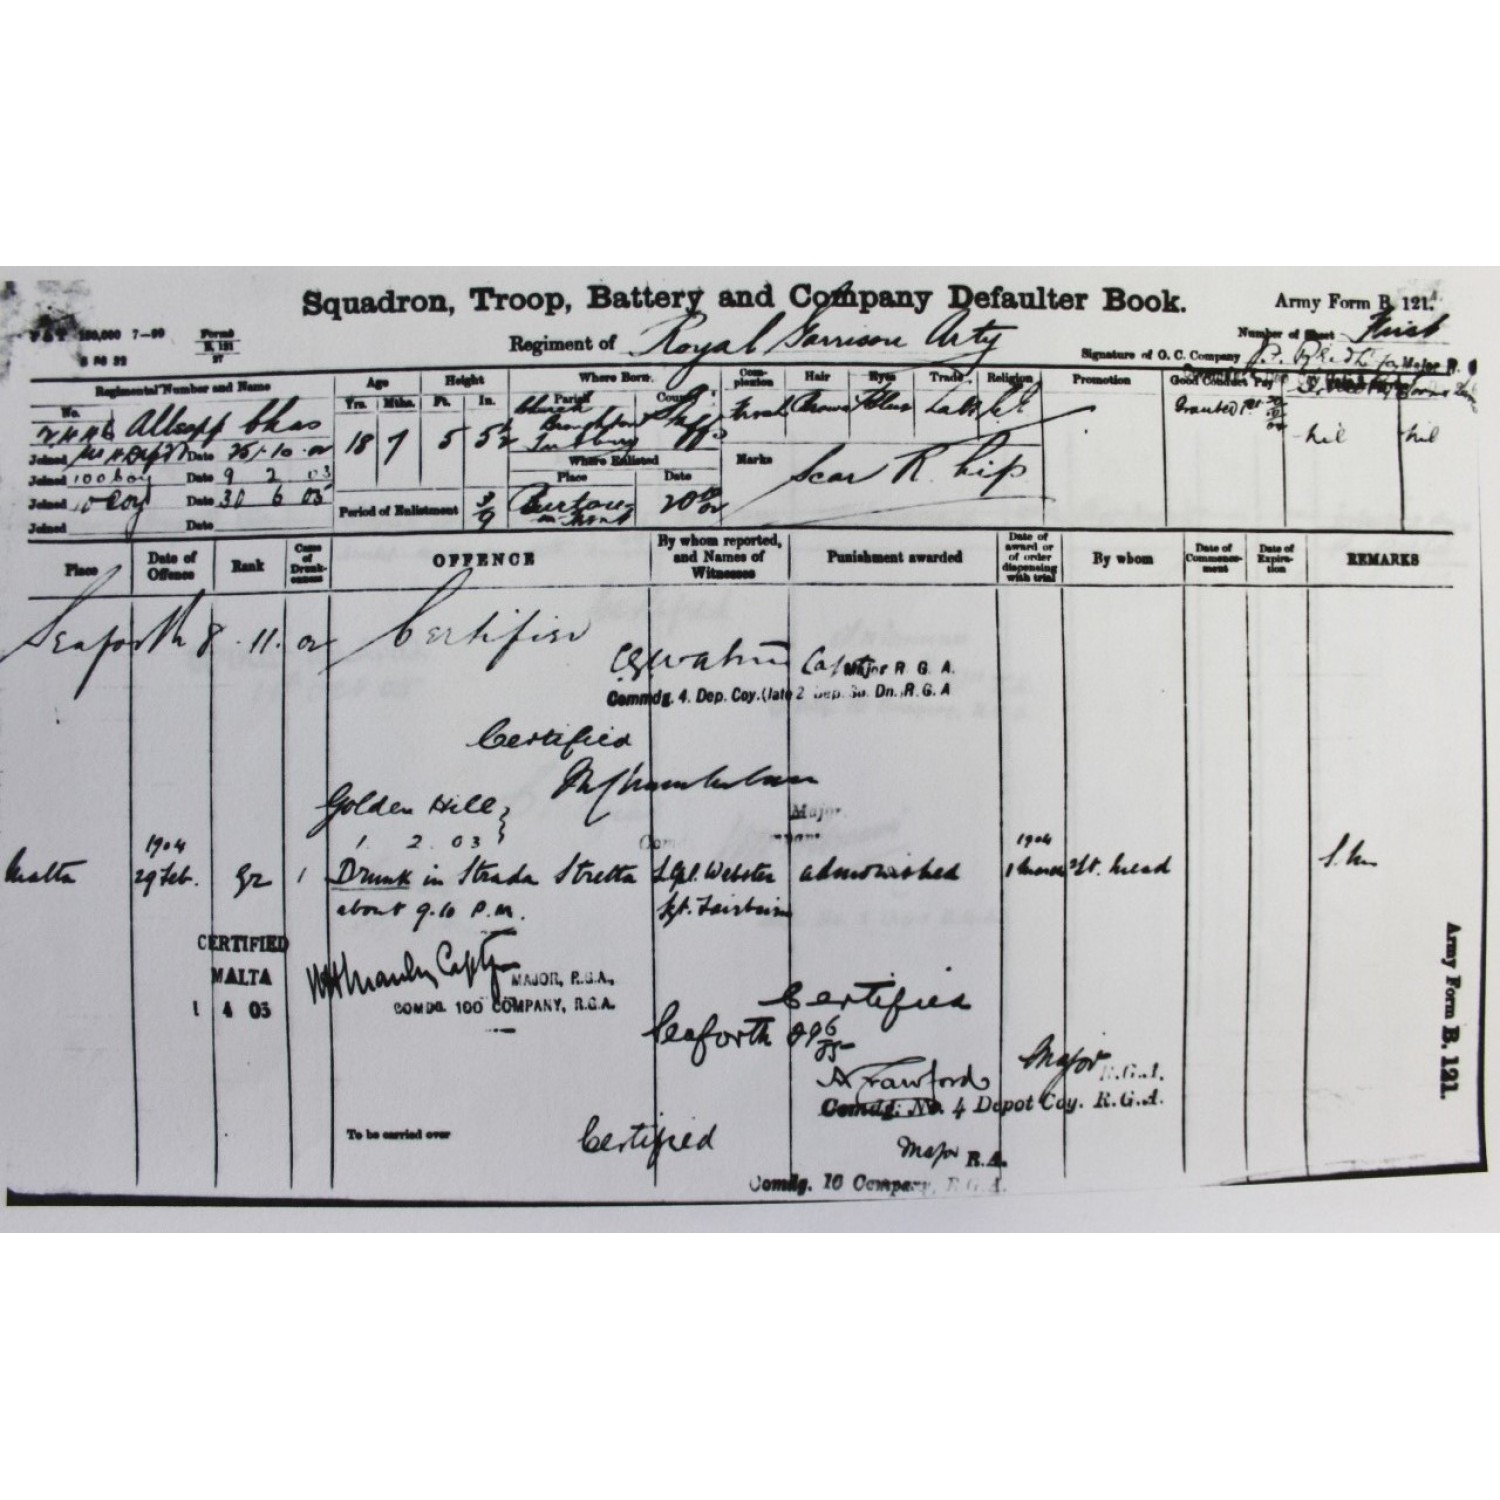 Squadron, Troop, Battery and Company Defaulter Book.
Army Form B. 121.
150,000 7—99
Forms
B. 121
27
Number of Sheet First
Regiment of Royal Garrison Arty
Signature of O. C. Company for Major R.
Regimental Number and Name
Age
Height
Where Born.
Complexion
Hair
Eyes
Trade
Religion
Promotion
Good Conduct Pay
Yrs. Mths. Ft. In. Parish County
No. Allsopp Chas
18 7 5 5½
Church Broughton Tutbury
Fresh Brown Blue Labr
Granted
nil nil
Joined Date 25-10-02
Joined 100 Coy Date 9 2 03
Joined 10 Coy Date 30 6 05
Joined Date
Where Enlisted
Place Date
Marks Scar R. hip
Period of Enlistment 3/9
Burton-on-Trent 20 10/02
Place
Date of Offence
Rank
Cases of Drunkenness
OFFENCE
By whom reported, and Names of Witnesses
Punishment awarded
Date of award or of order dispensing with trial
By whom
Date of Commencement
Date of Expiration
REMARKS
Seaforth 8.11.02 Certified
Capt Major R. G. A.
Commdg. 4. Dep. Coy. (late 2 Dep. So. Dn. R. G. A
Certified
Golden Hill
1. 2. 03
Major.
Malta 1904 29 Feb. Gr 1 Drunk in Strada Stretta Webster admonished 1904 1 March Lt. Mead
about 9.10 P.M. Sgt. Fairbairn
CERTIFIED
MALTA
1 4 05
Capt MAJOR, R.G.A.,
COMDG. 100 COMPANY, R.G.A.
Certified
Seaforth 29 6/05
A Crawford Major R.G.A.
Comdg. No. 4 Depot Coy. R.G.A.
To be carried over
Certified
Major R.A.
Comdg. 10 Company, R.G.A.
Army Form B. 121.